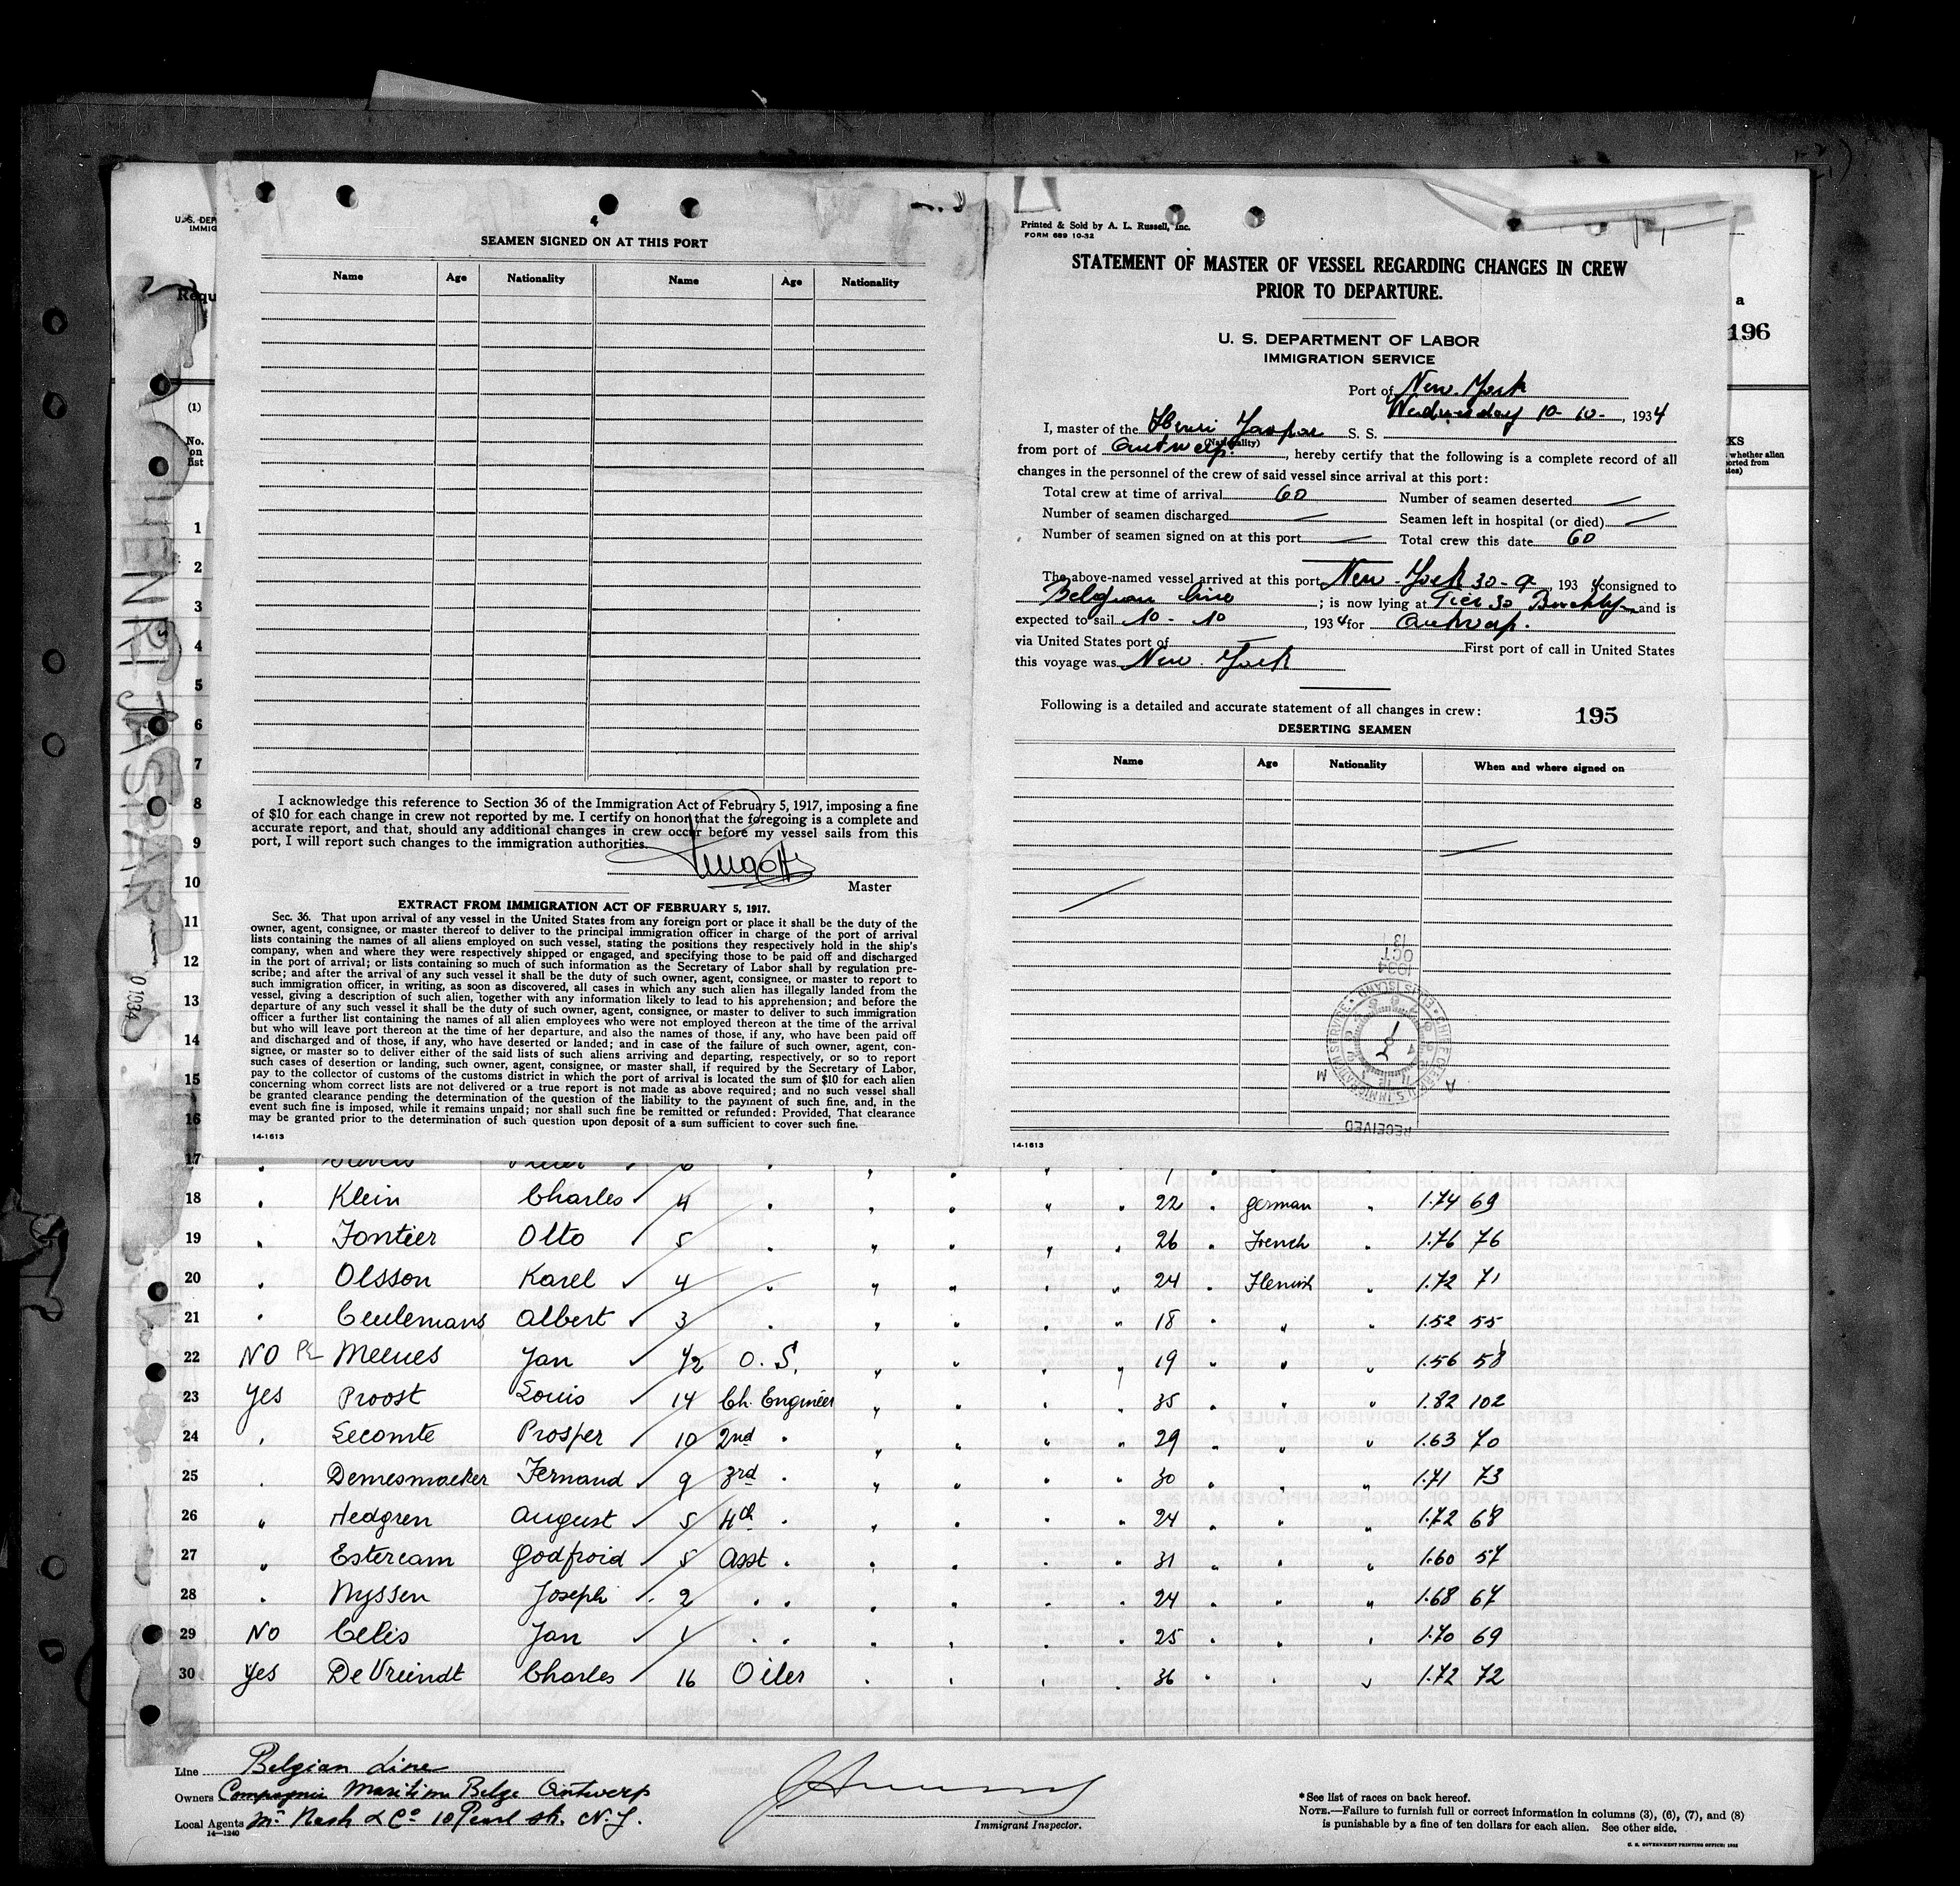 U.S. DEP
IMMIG
Requ
(1)
No.
on
list
HENRI JASPAR
0 1934
4
SEAMEN SIGNED ON AT THIS PORT
Name Age Nationality Name Age Nationality
I acknowledge this reference to Section 36 of the Immigration Act of February 5, 1917, imposing a fine
of $10 for each change in crew not reported by me. I certify on honor that the foregoing is a complete and
accurate report, and that, should any additional changes in crew occur before my vessel sails from this
port, I will report such changes to the immigration authorities.
Master
EXTRACT FROM IMMIGRATION ACT OF FEBRUARY 5, 1917.
Sec. 36. That upon arrival of any vessel in the United States from any foreign port or place it shall be the duty of the
owner, agent, consignee, or master thereof to deliver to the principal immigration officer in charge of the port of arrival
lists containing the names of all aliens employed on such vessel, stating the positions they respectively hold in the ship's
company, when and where they were respectively shipped or engaged, and specifying those to be paid off and discharged
in the port of arrival; or lists containing so much of such information as the Secretary of Labor shall by regulation pre-
scribe; and after the arrival of any such vessel it shall be the duty of such owner, agent, consignee, or master to report to
such immigration officer, in writing, as soon as discovered, all cases in which any such alien has illegally landed from the
vessel, giving a description of such alien, together with any information likely to lead to his apprehension; and before the
departure of any such vessel it shall be the duty of such owner, agent, consignee, or master to deliver to such immigration
officer a further list containing the names of all alien employees who were not employed thereon at the time of the arrival
but who will leave port thereon at the time of her departure, and also the names of those, if any, who have been paid off
and discharged and of those, if any, who have deserted or landed; and in case of the failure of such owner, agent, con-
signee, or master so to deliver either of the said lists of such aliens arriving and departing, respectively, or so to report
such cases of desertion or landing, such owner, agent, consignee, or master shall, if required by the Secretary of Labor,
pay to the collector of customs of the customs district in which the port of arrival is located the sum of $10 for each alien
concerning whom correct lists are not delivered or a true report is not made as above required; and no such vessel shall
be granted clearance pending the determination of the question of the liability to the payment of such fine, and, in the
event such fine is imposed, while it remains unpaid; nor shall such fine be remitted or refunded: Provided, That clearance
may be granted prior to the determination of such question upon deposit of a sum sufficient to cover such fine.
14-1613
Printed & Sold by A. L. Russell, Inc.
FORM 689 10-32
STATEMENT OF MASTER OF VESSEL REGARDING CHANGES IN CREW
PRIOR TO DEPARTURE.
U. S. DEPARTMENT OF LABOR
IMMIGRATION SERVICE
Port of New. York
Wednesday 10-10-, 1934
I, master of the Henri Jaspar S. S.
(Nationality)
from port of Antwerp., hereby certify that the following is a complete record of all
changes in the personnel of the crew of said vessel since arrival at this port:
Total crew at time of arrival 60 Number of seamen deserted —
Number of seamen discharged — Seamen left in hospital (or died) —
Number of seamen signed on at this port — Total crew this date 60
The above-named vessel arrived at this port New-York 30-9, 1934 consigned to
Belgian line; is now lying at Pier 30 and is
expected to sail 10-10, 1934 for Antwerp.
via United States port of — First port of call in United States
this voyage was New. York
Following is a detailed and accurate statement of all changes in crew:
195
DESERTING SEAMEN
Name Age Nationality When and where signed on
RECEIVED
CHIEF CLERK U.S. IMMIGRATION SERVICE ELLIS ISLAND
A M
1934
OCT
13
14-1613
a
196
KS
whether alien
ported from
tes)
1
2
3
4
5
6
7
8
9
10
11
12
13
14
15
16
17
18 " Klein Charles ✓ 4 " " " " " 22 " german " 1.74 69
19 " Fontier Otto ✓ 5 " " " " " 26 " French " 1.76 76
20 " Olsson Karel ✓ 4 " " " " " 24 " Flemish " 1.72 71
21 " Ceulemans Albert ✓ 3 " " " " " 18 " " " 1.52 55
22 NO Meeues Jan ✓ 1/2 O. S. " " " 19 " " " 1.56 58
23 Yes Proost Louis ✓ 14 Ch. Engineer " " " " 35 " " " 1.82 102
24 " Lecomte Prosper ✓ 10 2nd " " " " " 29 " " " 1.63 70
25 " Demesmaeker Fernand ✓ 9 3rd " " " " " 30 " " " 1.71 73
26 " Hedgren August ✓ 5 4th " " " " " 24 " " " 1.72 68
27 " Estercam Godfroid ✓ 5 Asst " " " " " 31 " " " 1.60 57
28 " Nyssen Joseph ✓ 2 " " " " " " 24 " " " 1.68 67
29 NO Celis Jan ✓ 1 " " " " " " 25 " " " 1.70 69
30 Yes De Vreindt Charles ✓ 16 Oiler " " " " 36 " " " 1.72 72
Line Belgian Line
Owners Compagnie Maritime Belge Antwerp
Local Agents Mr Nash & Co 10 Pearl St. N.Y.
14—1240
Immigrant Inspector.
*See list of races on back hereof.
NOTE.—Failure to furnish full or correct information in columns (3), (6), (7), and (8)
is punishable by a fine of ten dollars for each alien. See other side.
U. S. GOVERNMENT PRINTING OFFICE: 1932